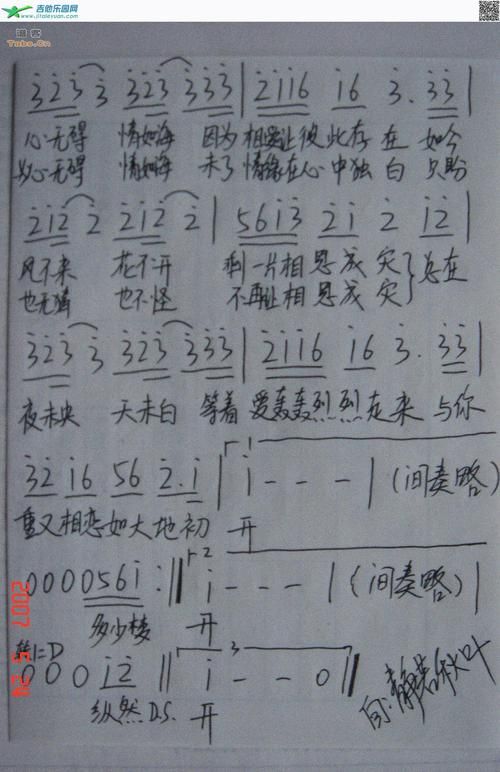 吉他乐园网
www.jitaleyuan.com
Tabs.Cn
3 2 3 3 3 2 3 3 3 3 | 2 1 1 6 1 6 3 . 3 3 |
心无碍 情如海 因为 相爱让彼此存在 如今
心无碍 情如海 未了 情缘在心中独白 只盼
2 1 2 2 2 1 2 2 | 5 6 1 3 2 1 2 1 2 |
风不来 花不开 剩一片相思成灾 总在
也无猜 也不怪 不再让相思成灾
3 2 3 3 3 2 3 3 3 3 | 2 1 1 6 1 6 3 . 3 3 |
夜未央 天未白 等着 爱轰轰烈烈走来 与你
3 2 1 6 5 6 2 . 1 | 1 - - - | (间奏略)
重又相恋如大地初 开
0 0 0 0 5 6 1 :‖ 1 - - - | (间奏略) |
多少楼 开
转1=D
0 0 0 1 2 ‖ 1 - - 0 ‖
纵然 D.S. 开
静若秋叶
2007